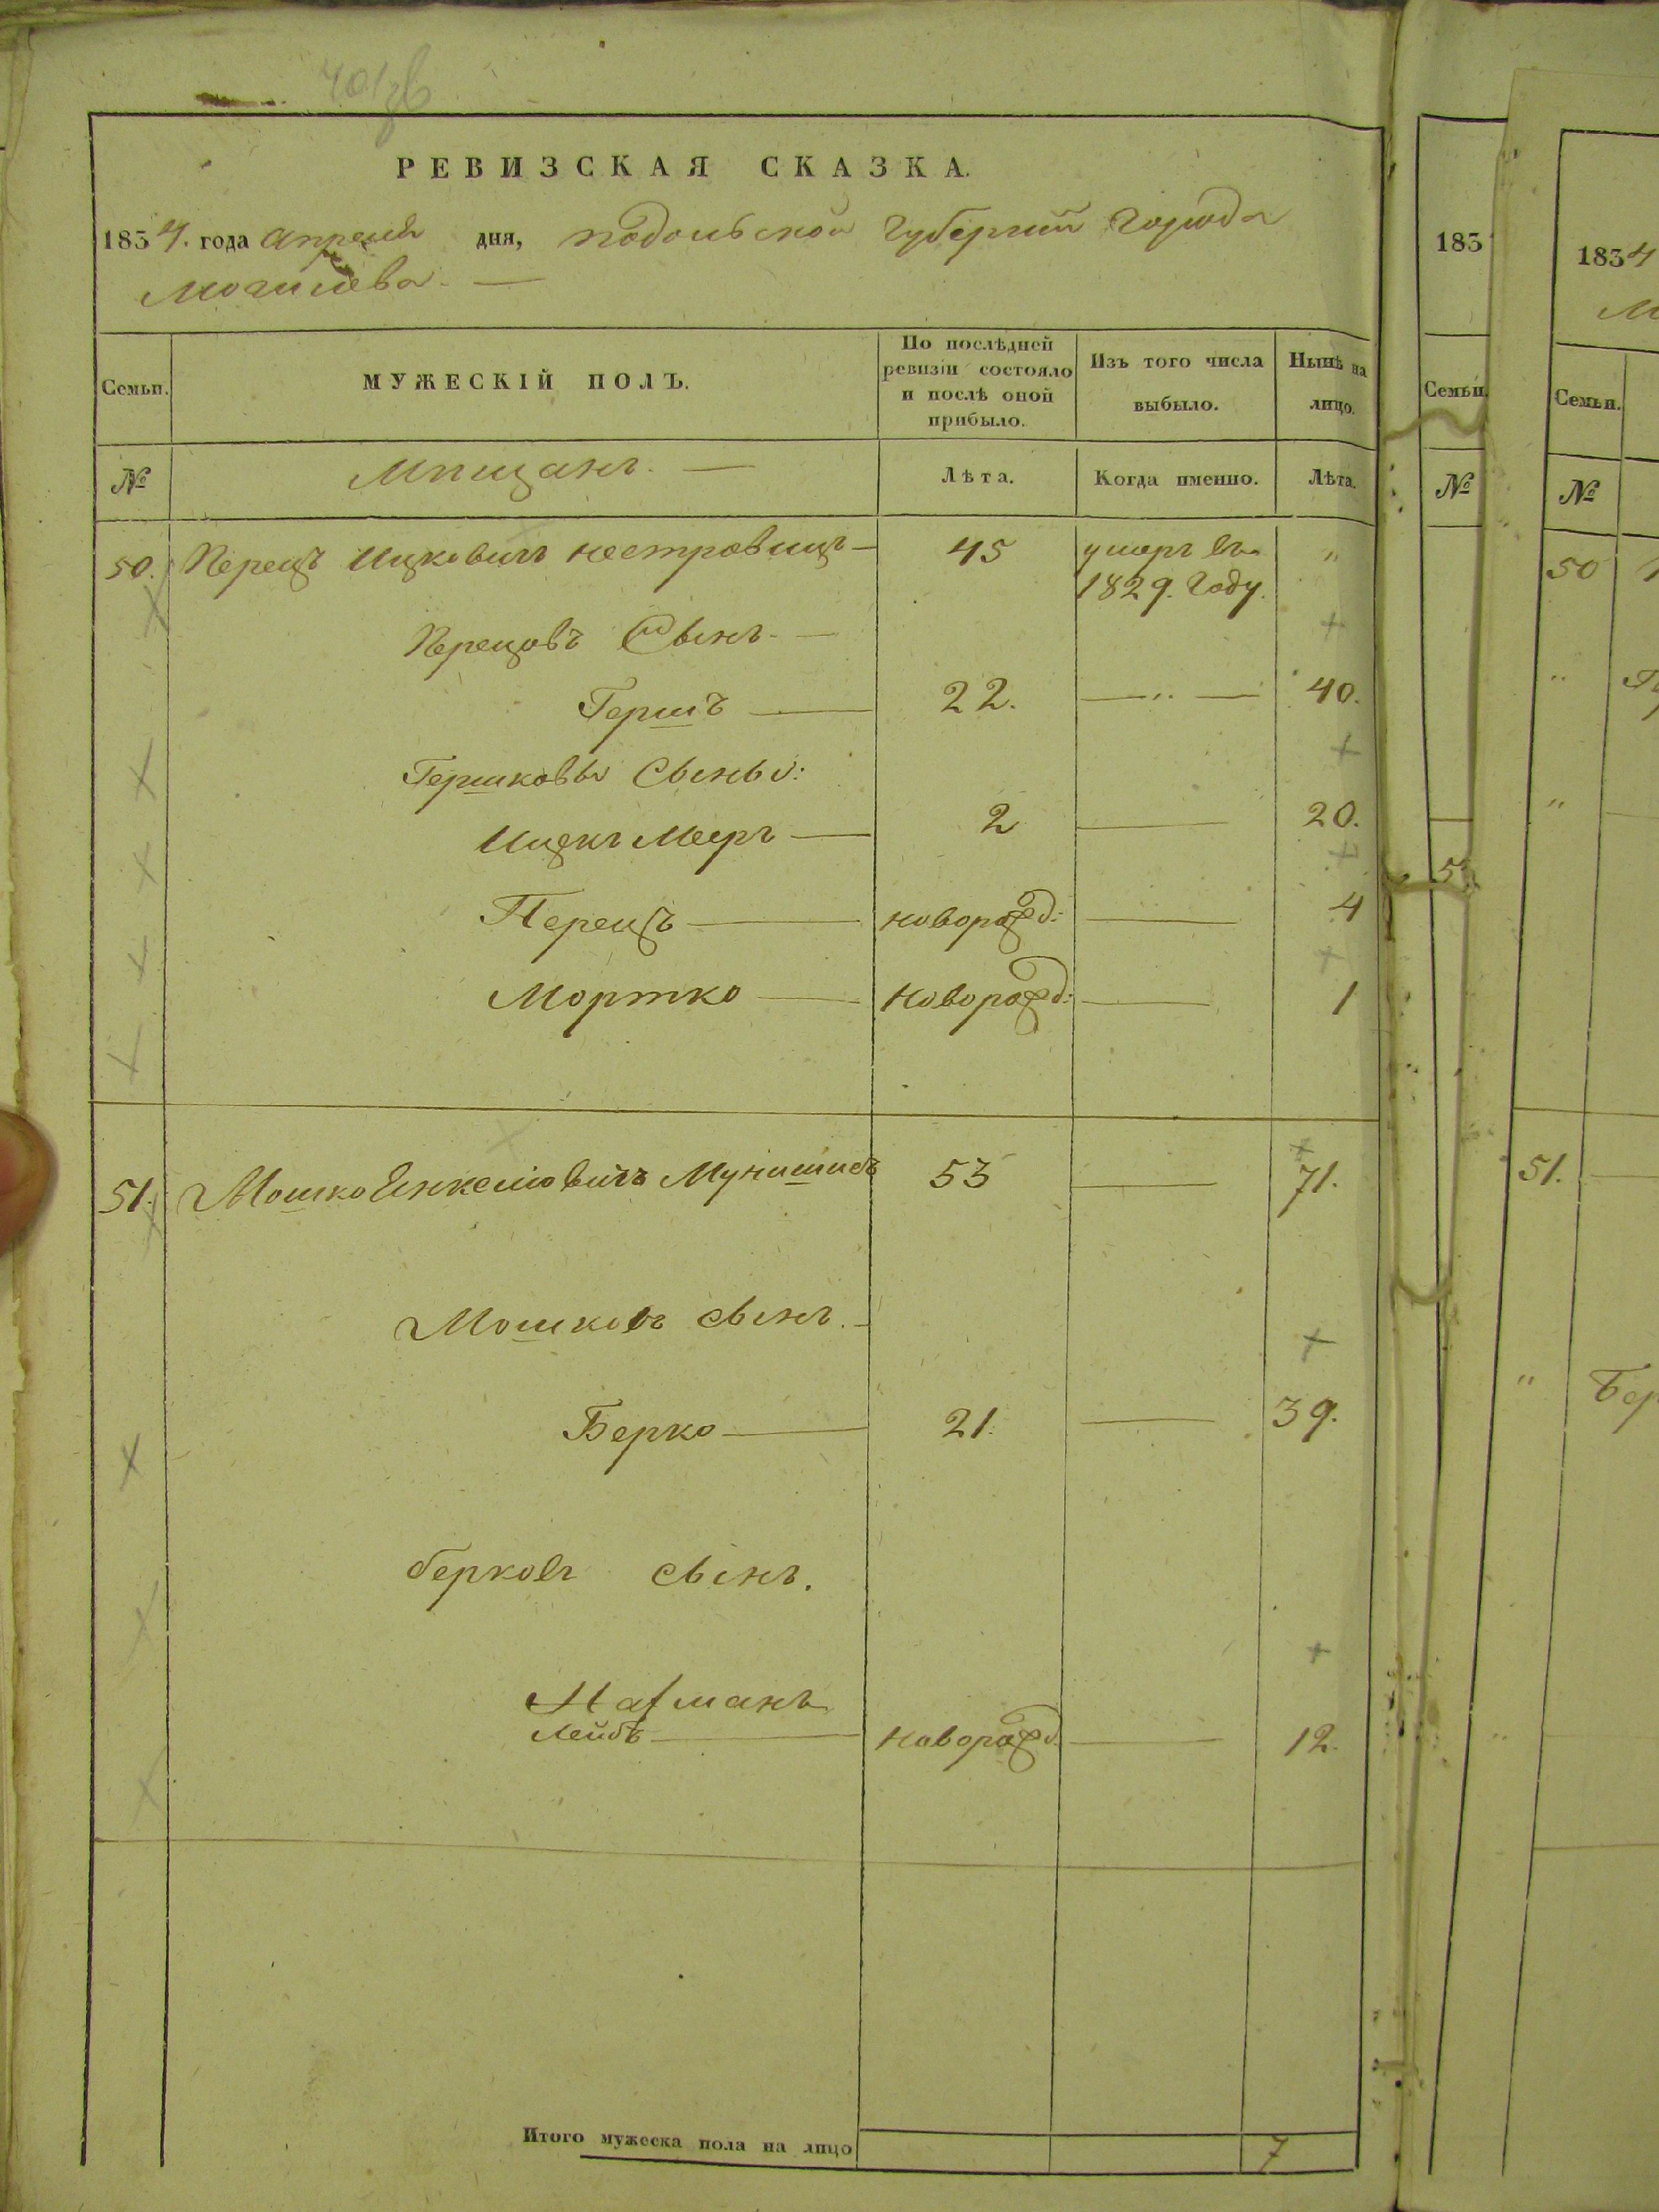 РЕВИЗСКАЯ СКАЗКА.
1834. года апреля дня, Подольской Губернии города
Могилева. —
Семьи.
МУЖЕСКІЙ ПОЛЪ.
По послѣдней ревизіи состояло и послѣ оной прибыло.
Изъ того числа выбыло.
Нынѣ на лицо.
№
Мѣщанъ. —
Лѣта.
Когда именно.
Лѣта.
50. Перецъ Ицковичъ Нестровицъ — 45 умеръ въ "
1829. Году.
Перецовъ Сынъ —
Гершъ — 22. — " — 40.
Гершковы Сыновьи:
Ицекъ Меръ — 2 — 20.
Перецъ — новорожд: — 4
Мортко — Новорожд: — 1
51. Мошко Енкелювичъ 53 — 71.
Мошковъ сынъ. —
Берко — 21. — 39.
берковъ сынъ.
Нахманъ
Лейбъ — Новорожд. — 12.
Итого мужеска пола на лицо 7
183
Семьи.
№
1834
М
Семьи.
№
50
"
"
51.
"
Бер